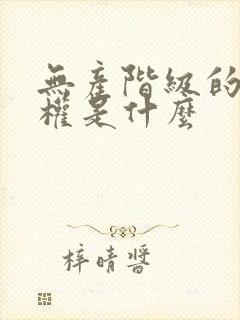 無產階級的
權是什麼
梓晴醬